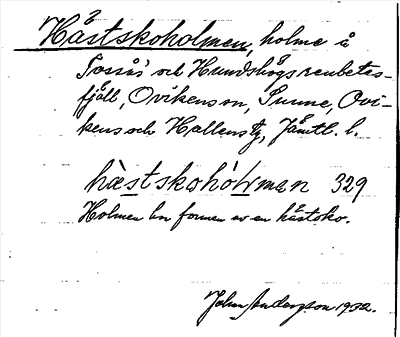 Hästskoholmen, holme å
Sossås' och Hundshögs renbetes-
fjäll, Ovikens sn, Sunne, Ovi-
kens och Hallens tg, Jämtl. l.
hæstskohòlman 329
Holmen har formen av en hästsko.
John Anderzson 1932.